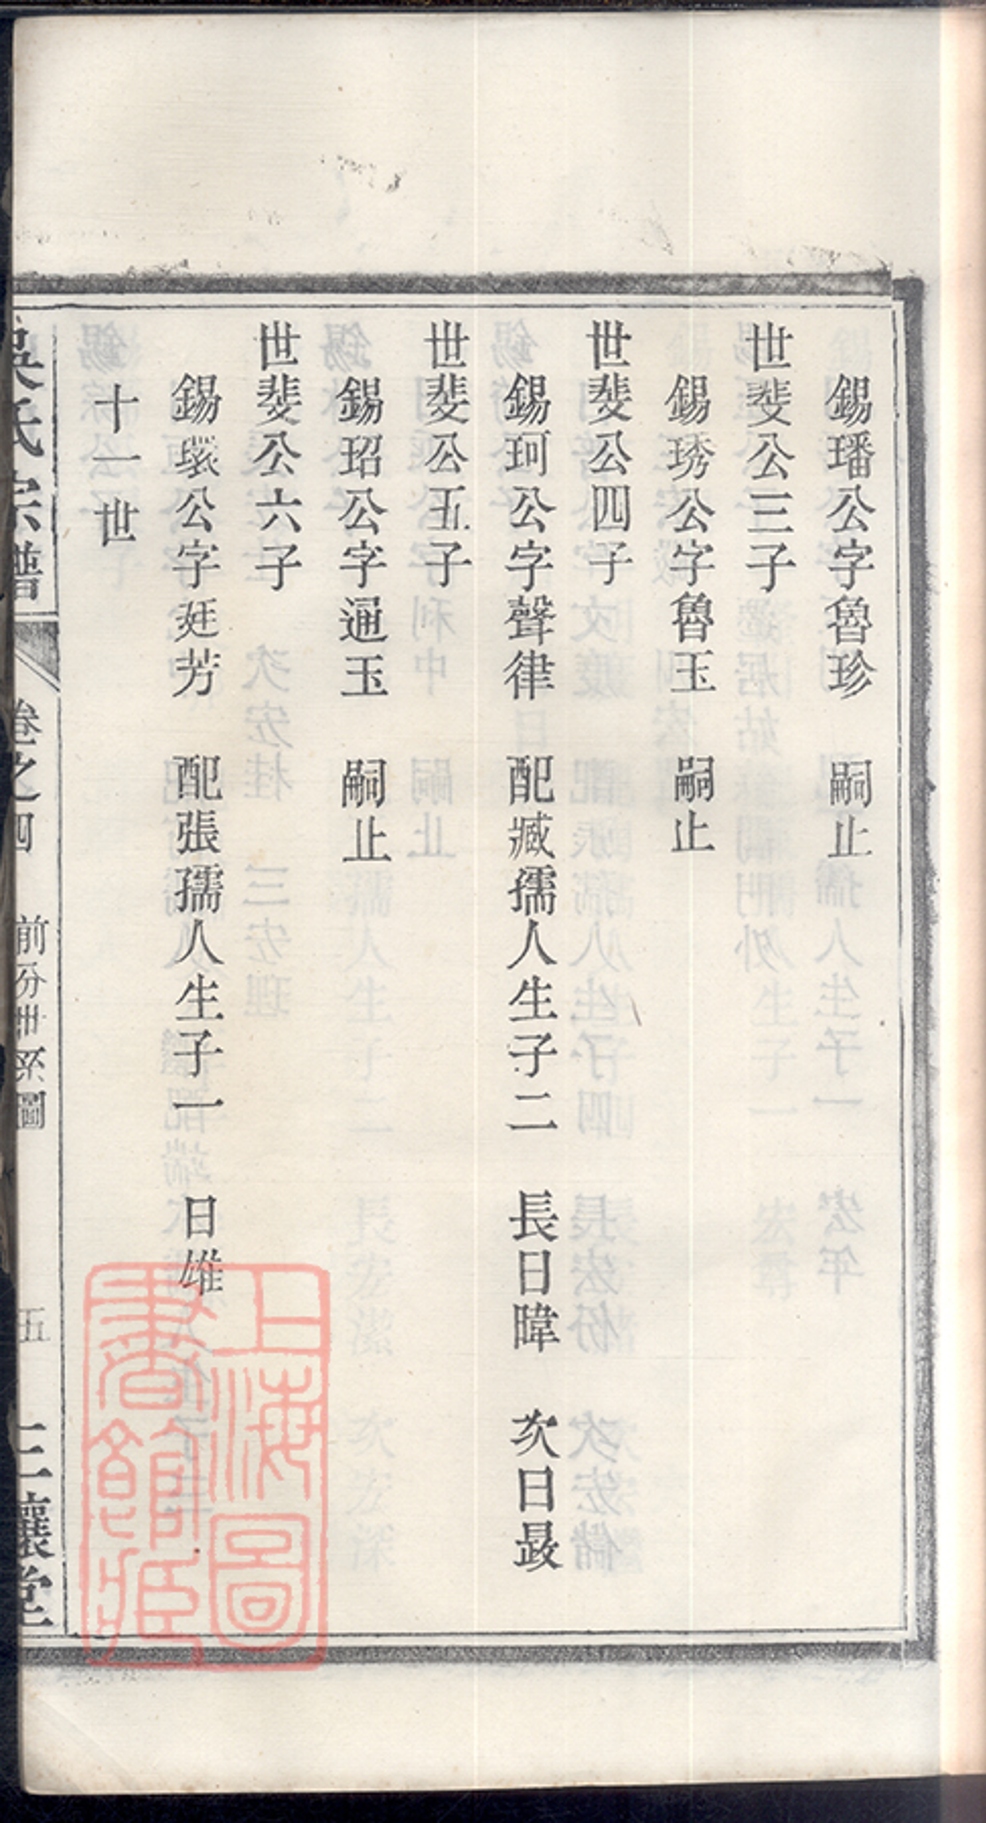 錫璠公字魯珍　嗣止
世斐公三子
錫琇公字魯玉　嗣止
世斐公四子
錫珂公字聲律　配臧孺人生子二　長日暐　次日晸
世斐公五子
錫玿公字通玉　嗣止
世斐公六子
錫環公字廷芳　配張孺人生子一　日雄
十一世
吳氏宗譜　卷之四　前分世系圖　五　三讓堂
上海圖
書館藏